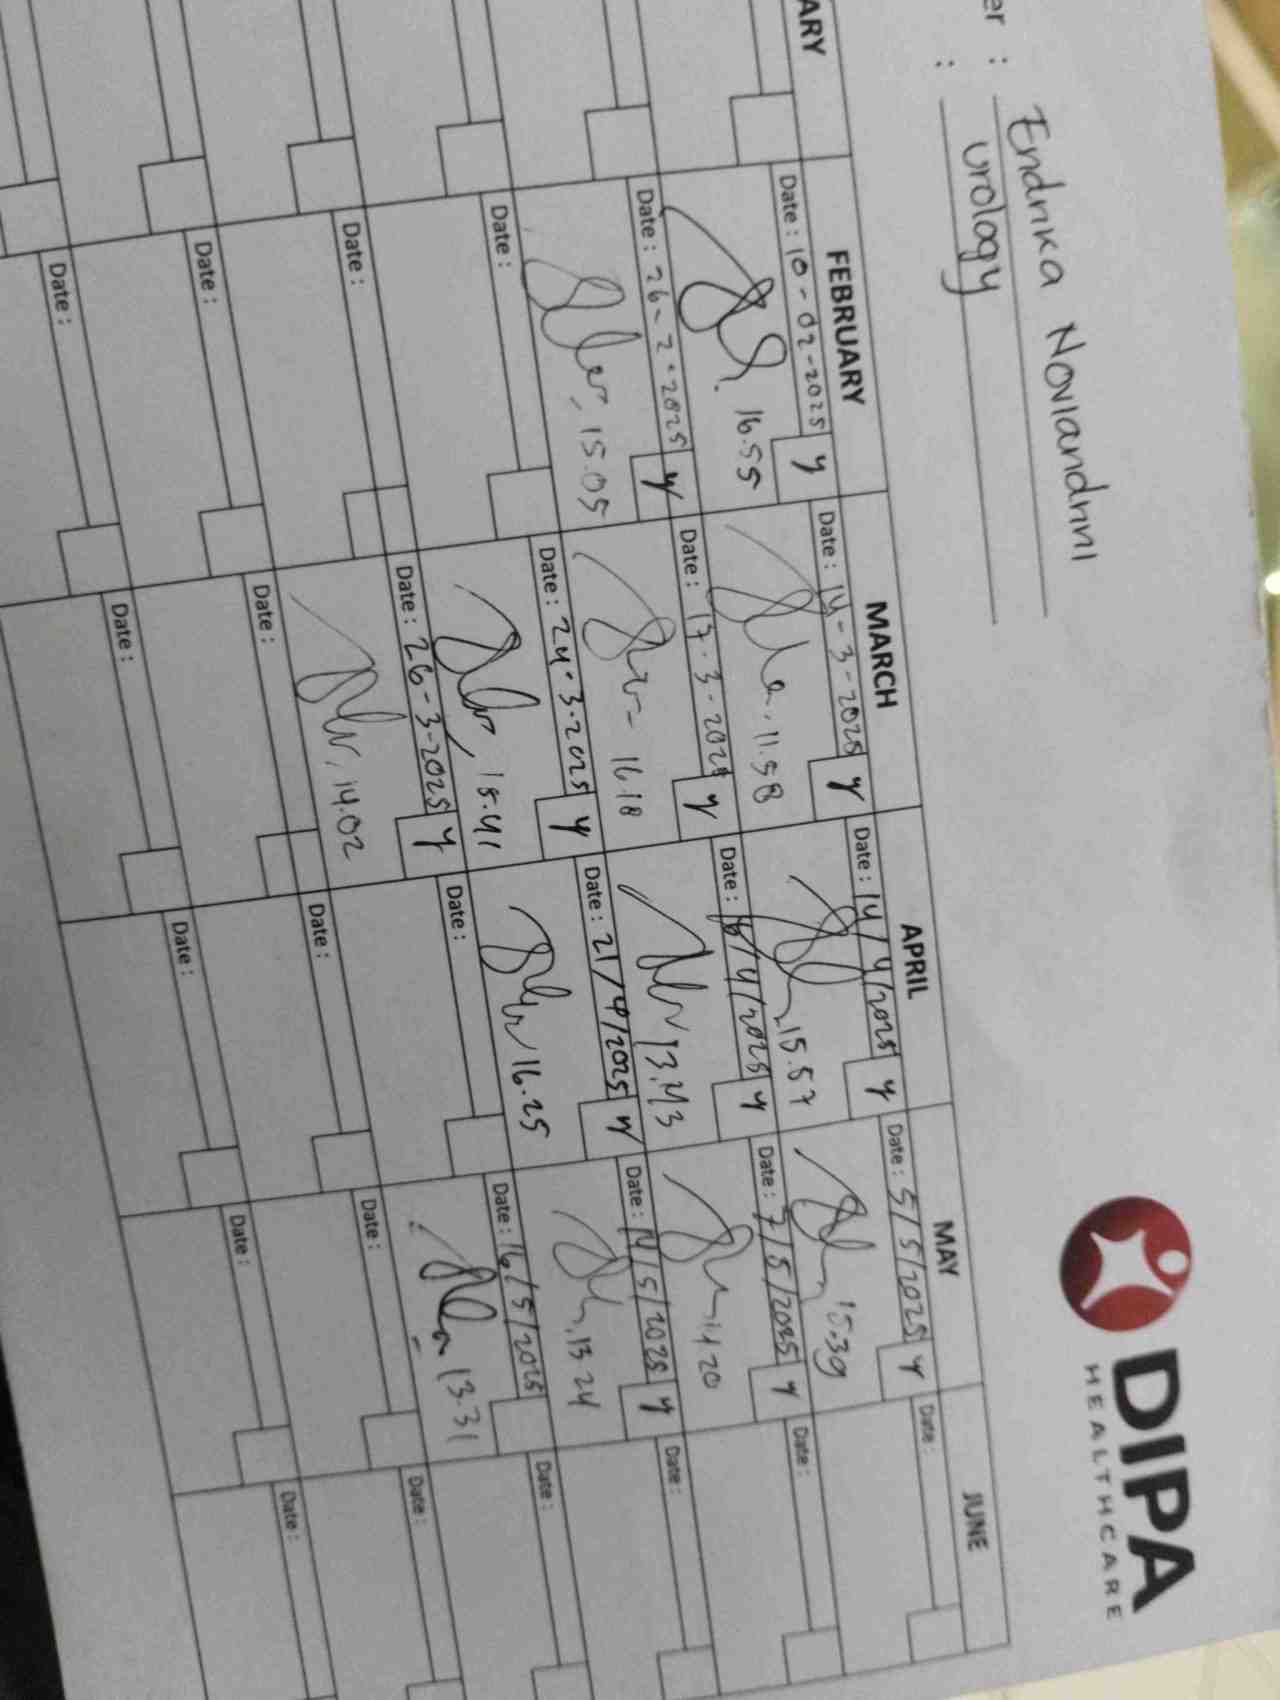 DIPA
HEALTHCARE
er : Endrika Noviandrini
: Urology
ARY FEBRUARY MARCH APRIL MAY JUNE
Date : 10-02-2025 y Date : 14-3-2025 y Date : 14/4/2025 y Date : 5/5/2025 y Date :
16.55 11.58 15.57 15.39
Date : 26-2-2025 y Date : 17-3-2025 y Date : /4/2025 y Date : 7/5/2025 y Date :
15.05 16.18 13.43 14 20
Date : Date : 24-3-2025 y Date : 21/4/2025 y Date : 14/5/2025 y Date :
15.41 16.25 13 24
Date : Date : 26-3-2025 y Date : Date : 16/5/2025 Date :
14.02 13.31
Date : Date : Date : Date : Date :
Date : Date : Date : Date : Date :